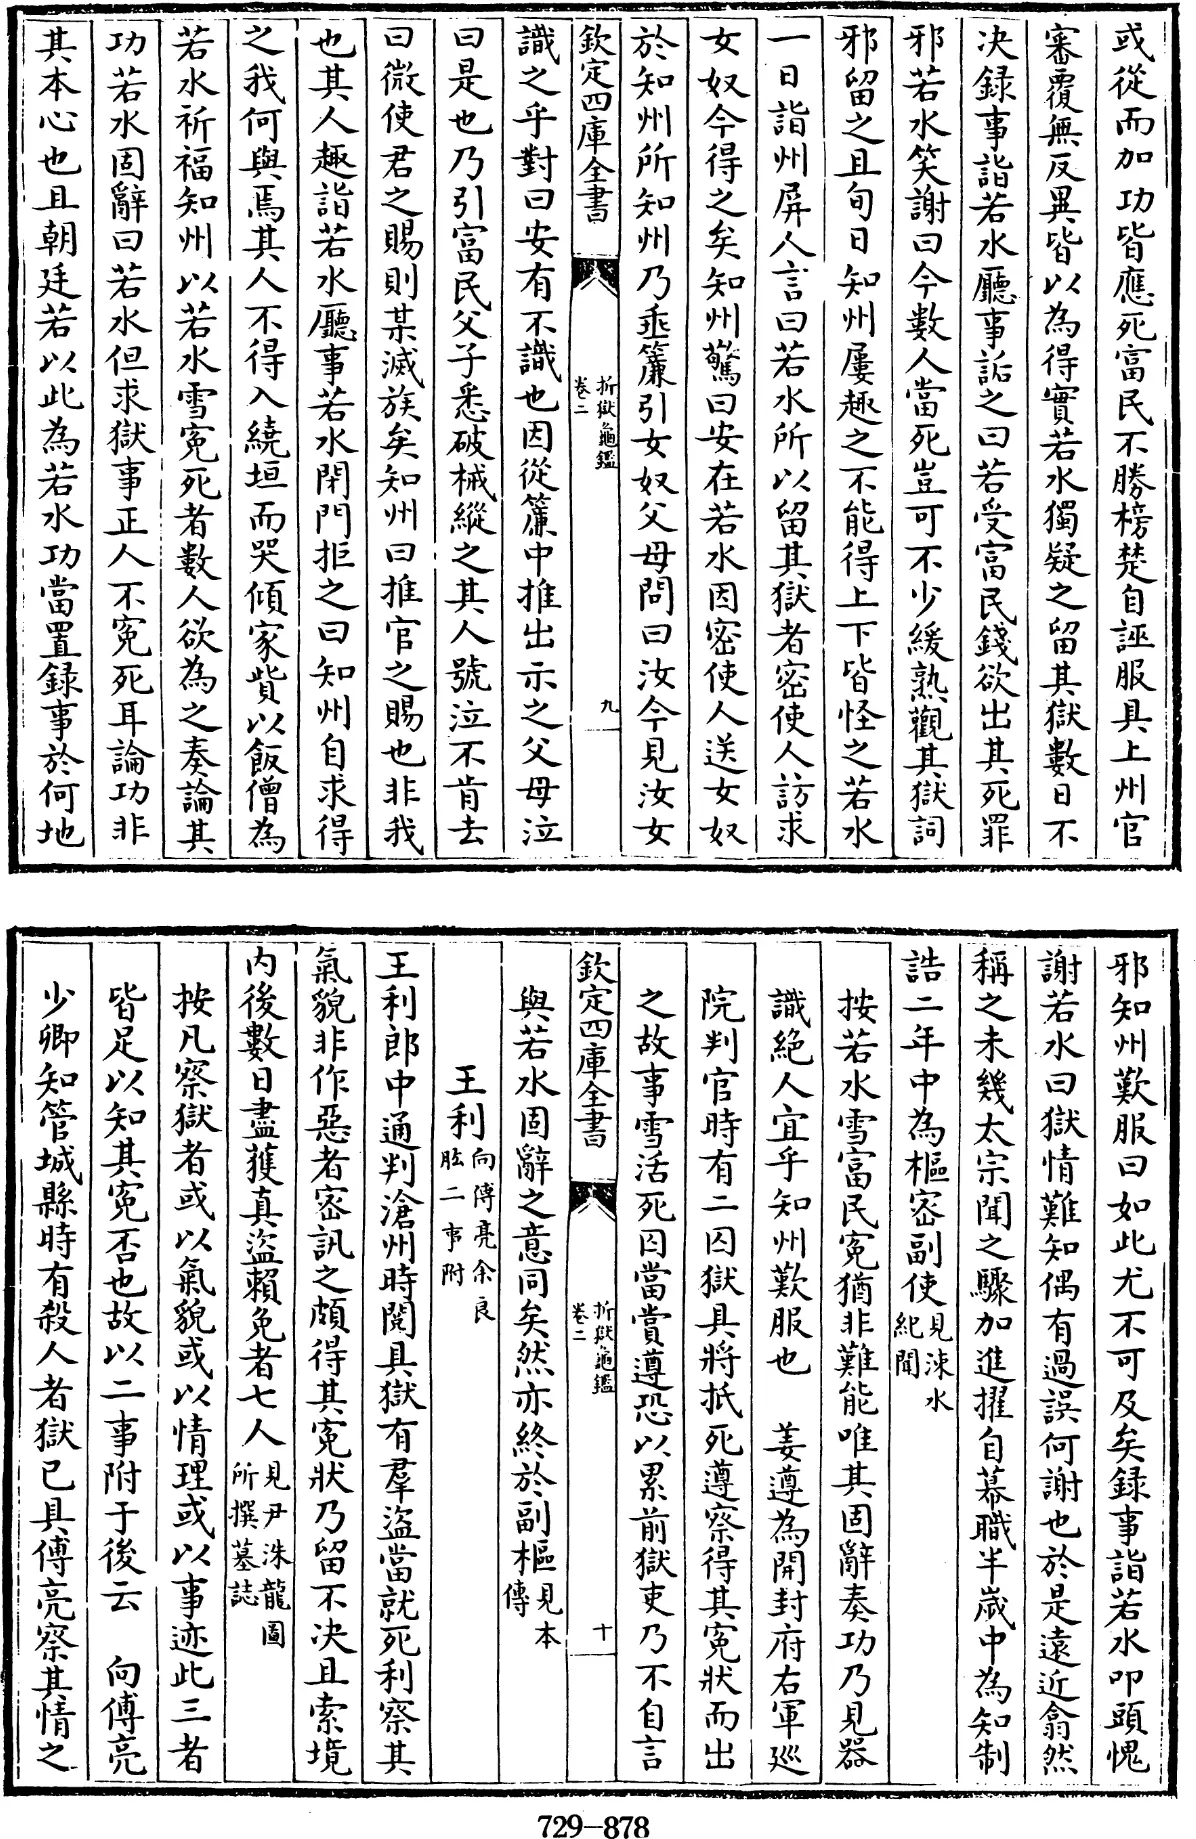 或從而加功皆應死富民不勝榜楚自誣服具上州官
審覆無反異皆以為得實若水獨疑之留其獄數日不
决録事詣若水廳事詬之曰若受富民錢欲出其死罪
邪若水笑謝曰今數人當死豈可不少緩熟觀其獄詞
邪留之且旬日知州屢趣之不能得上下皆怪之若水
一日詣州屏人言曰若水所以留其獄者密使人訪求
女奴今得之矣知州驚曰安在若水因密使人送女奴
於知州所知州乃垂簾引女奴父母問曰汝今見汝女
欽定四庫全書
折獄龜鑑
卷二
九
識之乎對曰安有不識也因從簾中推出示之父母泣
曰是也乃引富民父子悉破械縱之其人號泣不肯去
曰微使君之賜則某滅族矣知州曰推官之賜也非我
也其人趣詣若水廳事若水閉門拒之曰知州自求得
之我何與焉其人不得入繞垣而哭傾家貲以飯僧為
若水祈福知州以若水雪寃死者數人欲為之奏論其
功若水固辭曰若水但求獄事正人不寃死耳論功非
其本心也且朝廷若以此為若水功當置録事於何地
邪知州歎服曰如此尤不可及矣録事詣若水叩頭愧
謝若水曰獄情難知偶有過誤何謝也於是遠近翕然
稱之未幾太宗聞之驟加進擢自幕職半歲中為知制
誥二年中為樞密副使見涑水紀聞
按若水雪富民寃猶非難能唯其固辭奏功乃見器
識絕人宜乎知州歎服也 姜遵為開封府右軍巡
院判官時有二囚獄具將抵死遵察得其寃狀而出
之故事雪活死囚當賞遵恐以累前獄吏乃不自言
欽定四庫全書
折獄龜鑑
卷二
十
與若水固辭之意同矣然亦終於副樞見本傳
王利向傅亮余良肱二事附
王利郎中通判滄州時閱具獄有羣盜當就死利察其
氣貌非作惡者密訊之頗得其寃狀乃留不决且索境
内後數日盡獲真盜賴免者七人見尹洙龍圖所撰墓誌
按凡察獄者或以氣貌或以情理或以事迹此三者
皆足以知其寃否也故以二事附于後云 向傅亮
少卿知管城縣時有殺人者獄已具傅亮察其情之
729-878